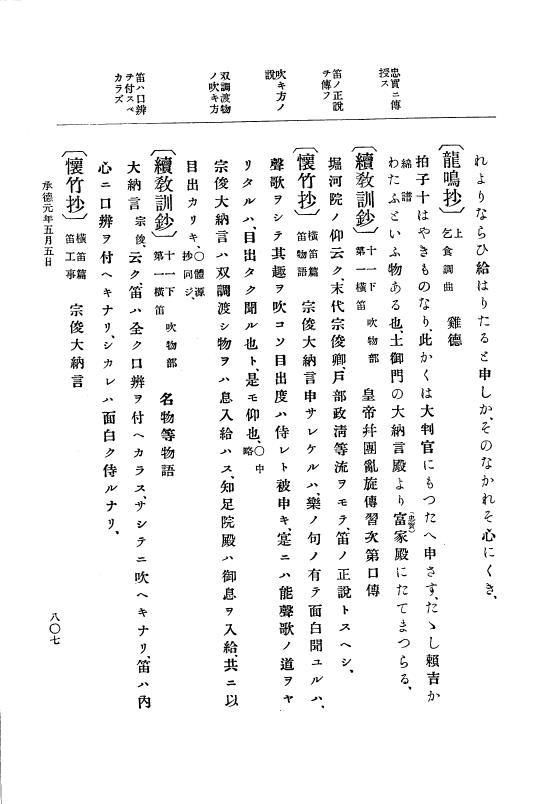 忠實ニ傳
授ス
笛ノ正説
ヲ傳フ
吹キ方ノ
説
双調渡物
ノ吹キ方
笛ハ口辨
ヲ付スベ
カラズ
れよりならひ給はりたると申しか、そのなかれそ心にくき、
〔龍鳴抄〕上 乞食調曲 雞德
拍子十はやきものなり、此かくは大判官にもつたへ申さす、たゝし賴吉か
綿譜
わたふといふ物ある也、土御門の大納言殿より富家殿にたてまつらる、
(忠實)
〔續敎訓鈔〕十一下 第一橫笛 吹物部 皇帝幷團亂旋傳習次第口傳
堀河院ノ仰云ク、末代宗俊卿、戸部政淸等流ヲモテ、笛ノ正説トスヘシ、
〔懷竹抄〕橫笛篇 笛物語 宗俊大納言申サレケルハ、樂ノ句ノ有テ面白聞ユルハ、
聲歌ヲシテ其趣ヲ吹コソ目出度ハ侍レト被申キ、寔ニハ能聲歌ノ道ヲヤ
リタルハ、目出タク聞ル也ト、是モ仰也、〇中略
宗俊大納言ハ双調渡シ物ヲハ息入給ハス、知足院殿ハ御息ヲ入給、共ニ以
目出カリキ、〇體源抄同ジ、
〔續敎訓鈔〕十一下 第一橫笛 吹物部 名物等物語
大納言宗俊、云ク、笛ハ全ク口辨ヲ付ヘカラス、サシテニ吹ヘキナリ、笛ハ內
心ニ口辨ヲ付ヘキナリ、シカレハ面白ク侍ルナリ、
〔懷竹抄〕橫笛篇 笛工事 宗俊大納言
承德元年五月五日
八〇七